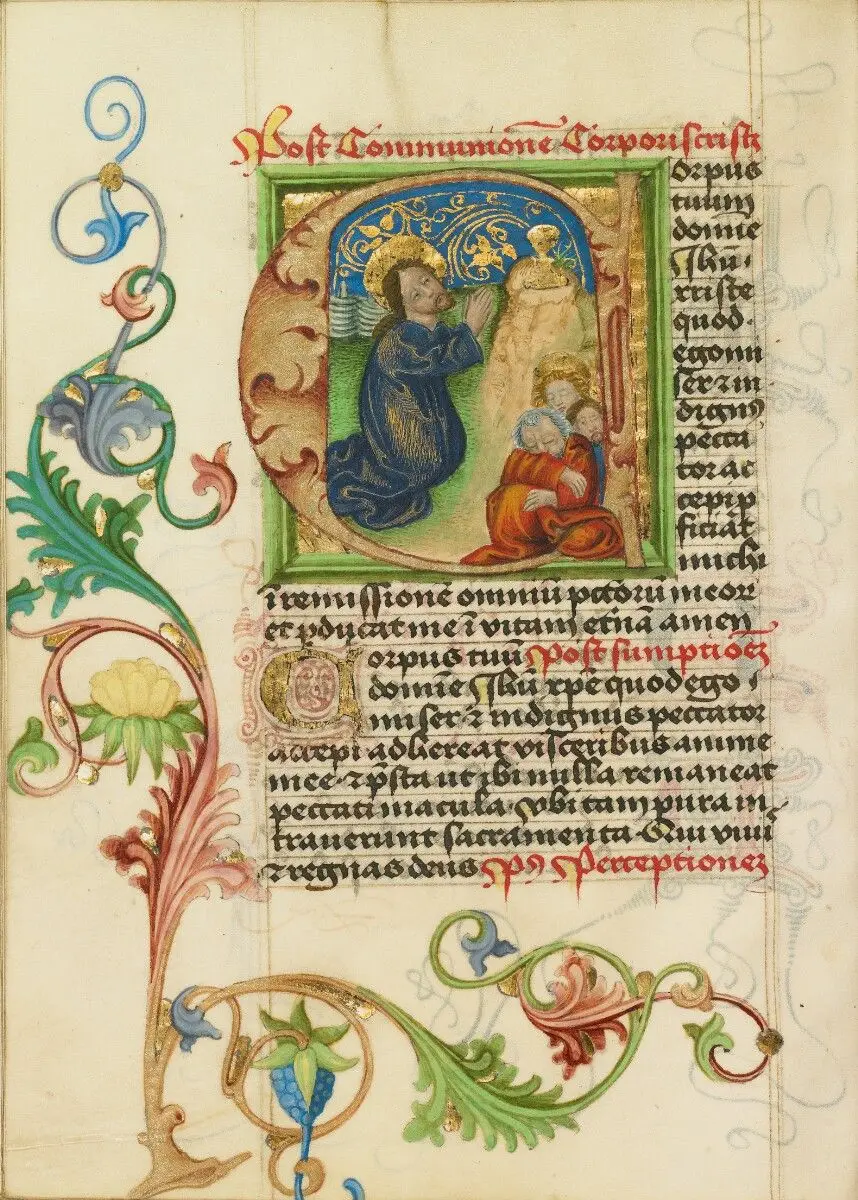 Post Communionē Corporis cristi
orpus
tuum
domine
Jhū
xp̄iste
quod
ego mi
ser ⁊ in
dignꝰ
pecca
tor ac
cepi ꝑ
ficiat
michi
ī remissionē omniū pctōrū meorꝝ
et ꝑducat me ī vitam et̄nā amen
Corpus tuū Post sumptionē
domine Jhū xp̄e quod ego
miser ⁊ indignus peccator
accepi adhereat visceribus anime
mee ⁊ p̄sta ut ibi nulla remaneat
peccati macula vbi tam pura in
trauerunt sacramenta Qui viuis
⁊ regnas deus Perceptionē